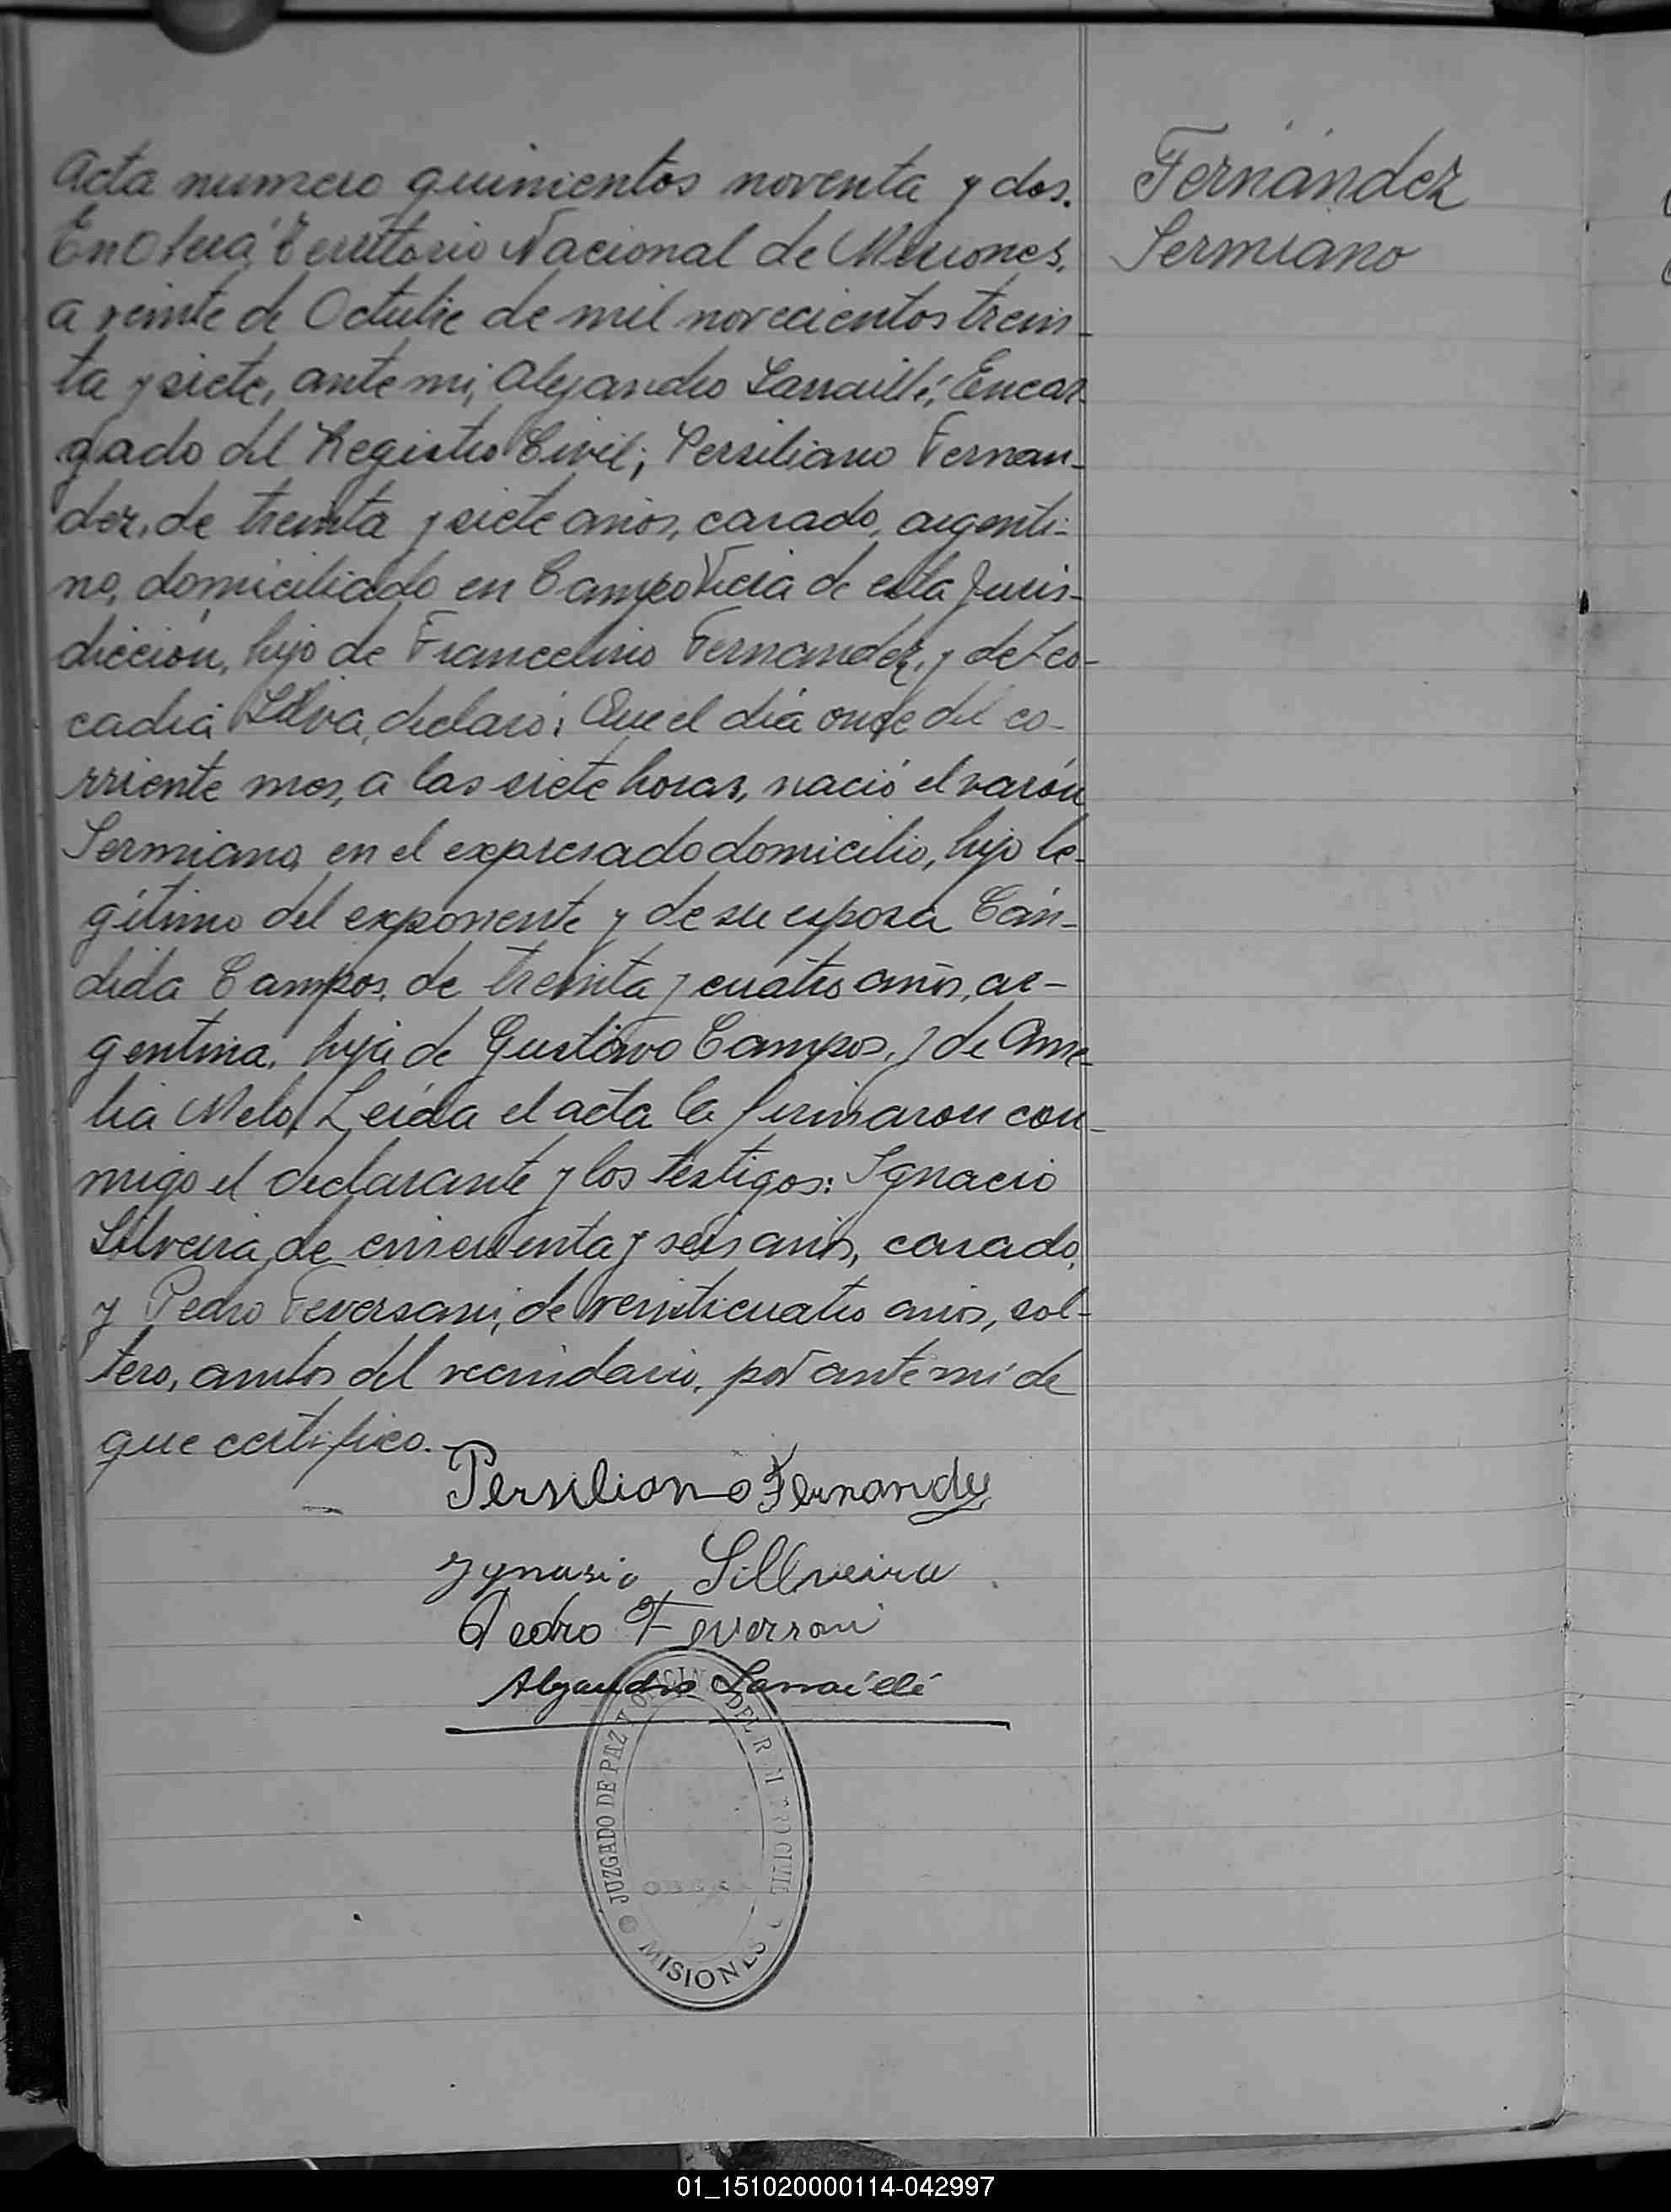 Acta numero quinientos noventa y dos.
En Oberá, Territorio Nacional de Misiones,
a veinte de Octubre de mil novecientos trein-
ta y siete, ante mi, Alejandro Larraillé, Encar-
gado del Registro Civil; Persiliano Fernan-
dez, de treinta y siete años, casado, argenti-
no, domiciliado en Campo Viera de esta Juris-
dicción, hijo de Francelino Fernandez, y de Leo-
cadia Silva, declaró: Que el día once del co-
rriente mes, a las siete horas, nació el varón
Sermiano, en el expresado domicilio, hijo le-
gítimo del exponente y de su esposa Cán-
dida Campos, de treinta y cuatro años, ar-
gentina, hija de Gustavo Campos, y de Ame-
lia Melo. Leída el acta la firmaron con-
migo el declarante y los testigos: Ignacio
Silveira, de cincuenta y seis años, casado,
y Pedro Feversani, de veinticuatro años, sol-
tero, ambos del vecindario, por ante mí de
que certifico.
Persiliano Fernandez
Ygnasio Sillveira
Pedro Feversani
Alejandro Larraillé
JUZGADO DE PAZ Y OFICIN DEL R TRO CIVIL
OBERA
MISIONES
Fernández
Sermiano
01_151020000114-042997